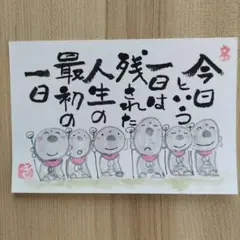 今日
という
一日は
残された
人生の
最初の
一日